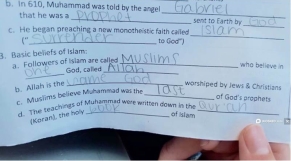 b. In 610, Muhammad was told by the angel Gabriel
that he was a prophet sent to Earth by God
c. He began preaching a new monotheistic faith called Islam
("Surrender to God")
3. Basic beliefs of Islam:
a. Followers of Islam are called Muslims who believe in
one God, called Allah
b. Allah is the same God worshiped by Jews & Christians
c. Muslims believe Muhammad was the last of God's prophets
d. The teachings of Muhammad were written down in the Qur'an
(Koran), the holy book of Islam